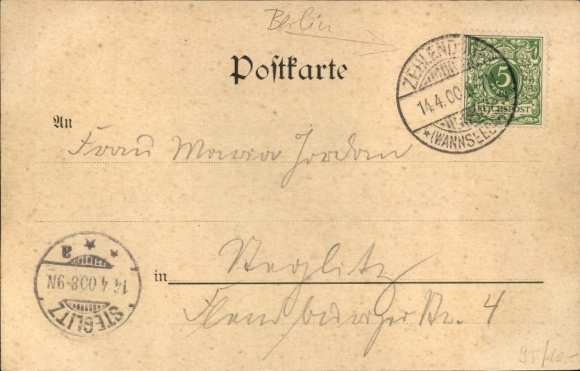 Berlin
Postkarte
ZEHLENDORF
14.4.00
*(WANNSEEB
5
REICHSPOST
An
Frau Maria Jordan
in Steglitz
Flensburgerstr. 4
STEGLITZ
14.4.00.8-9N
* * a